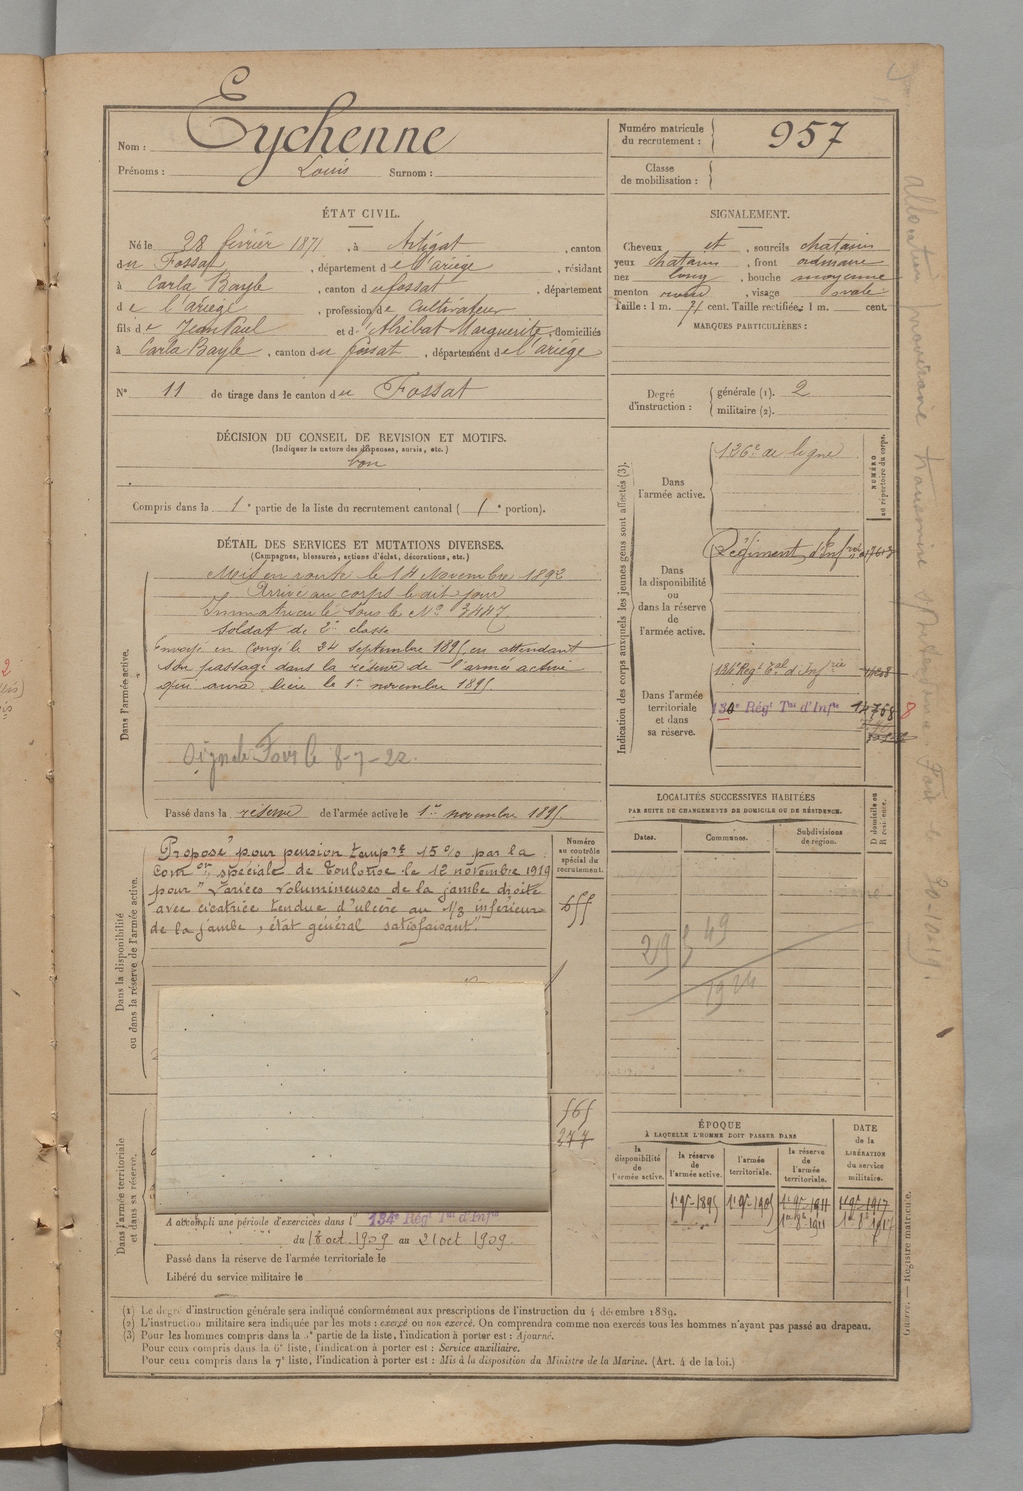 Nom : Eychenne
Prénoms : Louis Surnom :
Numéro matricule du recrutement : 957
Classe de mobilisation :
ÉTAT CIVIL.
Né le 28 février 1871, à Artigat, canton
du Fossat, département de l'ariège, résidant
à Carla Bayle, canton du fossat, département
de l'ariège, profession de Cultivateur
fils de Jean Paul et d' Abribat Marguerite, domiciliés
à Carla Bayle, canton du fossat, département de l'ariège
N° 11 de tirage dans le canton du Fossat
SIGNALEMENT.
Cheveux et, sourcils chatains
yeux chatains, front ordinaire
nez long, bouche moyenne
menton rond, visage ovale
Taille : 1 m. 71 cent. Taille rectifiée : 1 m. cent.
MARQUES PARTICULIÈRES :
Degré d'instruction : générale (1). 2
militaire (2).
DÉCISION DU CONSEIL DE REVISION ET MOTIFS.
(Indiquer la nature des dispenses, sursis, etc.)
bon
Compris dans la 1e partie de la liste du recrutement cantonal (1e portion).
DÉTAIL DES SERVICES ET MUTATIONS DIVERSES.
(Campagnes, blessures, actions d'éclat, décorations, etc.)
Dans l'armée active.
Mis en route le 14 Novembre 1892
Arrivé au corps le dit jour
Immatriculé sous le N° 3447
soldat de 2e classe
Envoyé en congé le 24 septembre 1895, en attendant
son passage dans la réserve de l'armée active
qui aura lieu le 1er novembre 1895.
8-7-22.
Passé dans la réserve de l'armée active le 1er novembre 1895.
Indication des corps auxquels les jeunes gens sont affectés (3).
NUMÉRO au répertoire du corps.
Dans l'armée active.
126e de ligne
Dans la disponibilité ou dans la réserve de l'armée active.
Régiment d'Infrie
Dans l'armée territoriale et dans sa réserve.
134e Regt Tal d'Infrie
130e Régt Tal d'Infie 14758 8
Dans la disponibilité ou dans la réserve de l'armée active.
Proposé pour pension tempre 15% par la
Comon spéciale de Toulouse le 12 novembre 1919
pour "Varices volumineuses de la jambe droite
avec cicatrice tendue d'ulcère au 1/3 inférieur
de la jambe, état général satisfaisant."
Numéro au contrôle spécial du recrutement.
655
565
277
LOCALITÉS SUCCESSIVES HABITÉES
PAR SUITE DE CHANGEMENTS DE DOMICILE OU DE RÉSIDENCE.
Dates.
Communes.
Subdivisions de région.
D domicile ou R résidence.
219 49
1924
ÉPOQUE
À LAQUELLE L'HOMME DOIT PASSER DANS
la disponibilité de l'armée active.
la réserve de l'armée active.
l'armée territoriale.
la réserve de l'armée territoriale.
DATE de la LIBÉRATION du service militaire.
1er 9re 1895
1er 9re 1905
1er 9re 1911
1er 9re 1917
Dans l'armée territoriale et dans sa réserve.
A accompli une période d'exercices dans l' 134e Régt Tal d'Infie
du 13 oct 1909 au 21 oct 1909.
Passé dans la réserve de l'armée territoriale le
Libéré du service militaire le
(1) Le degré d'instruction générale sera indiqué conformément aux prescriptions de l'instruction du 4 décembre 1889.
(2) L'instruction militaire sera indiquée par les mots : exercé ou non exercé. On comprendra comme non exercés tous les hommes n'ayant pas passé au drapeau.
(3) Pour les hommes compris dans la 5e partie de la liste, l'indication à porter est : Ajourné.
Pour ceux compris dans la 6e liste, l'indication à porter est : Service auxiliaire.
Pour ceux compris dans la 7e liste, l'indication à porter est : Mis à la disposition du Ministre de la Marine. (Art. 4 de la loi.)
Guerre. — Registre matricule.
allocation provisoire transmise
30-10-19.